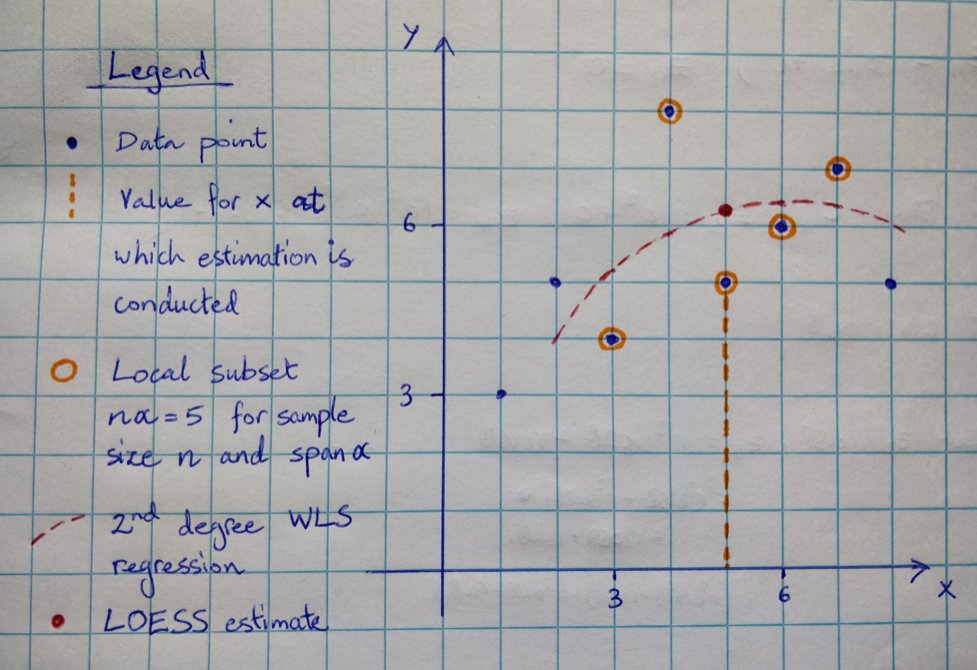 Legend
Data point
Value for x at
which estimation is
conducted
Local subset
nα = 5 for sample
size n and span α
2nd degree WLS
regression
LOESS estimate
y
6
3
3
6
x